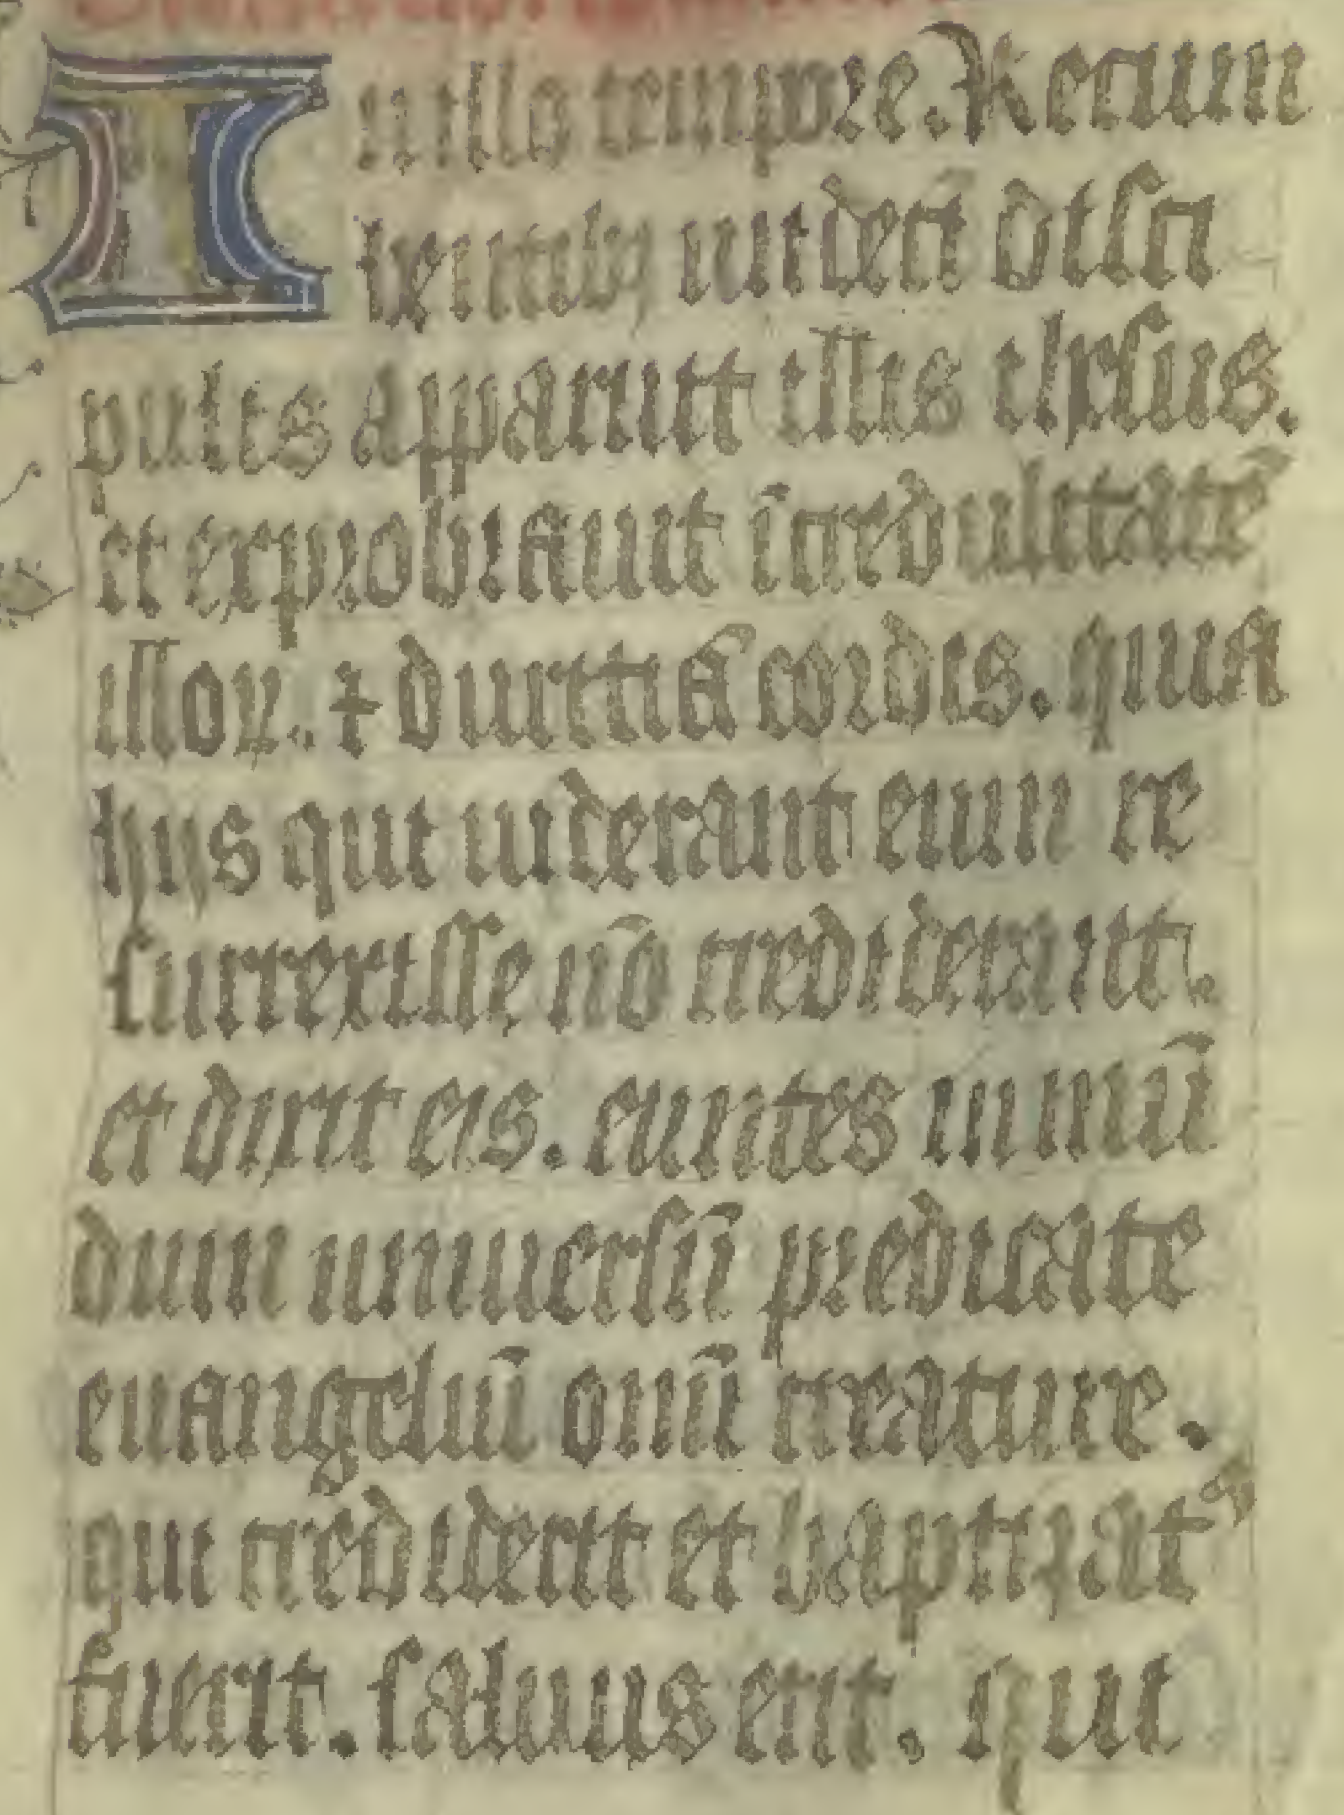 In illo tempore. Recum
bentibꝫ undecī disci
pulis apparuit illis ihesus.
et exprobrauit īcredulitatē
illoꝝ. ⁊ duritiā cordis. quia
hijs qui uiderant eum re
surrexisse nō crediderant.
et dixit eis. euntes in mū
dum uniuersū predicate
euangeliū omī creature.
qui crediderit et baptizatꝰ
fuerit. saluus erit. qui